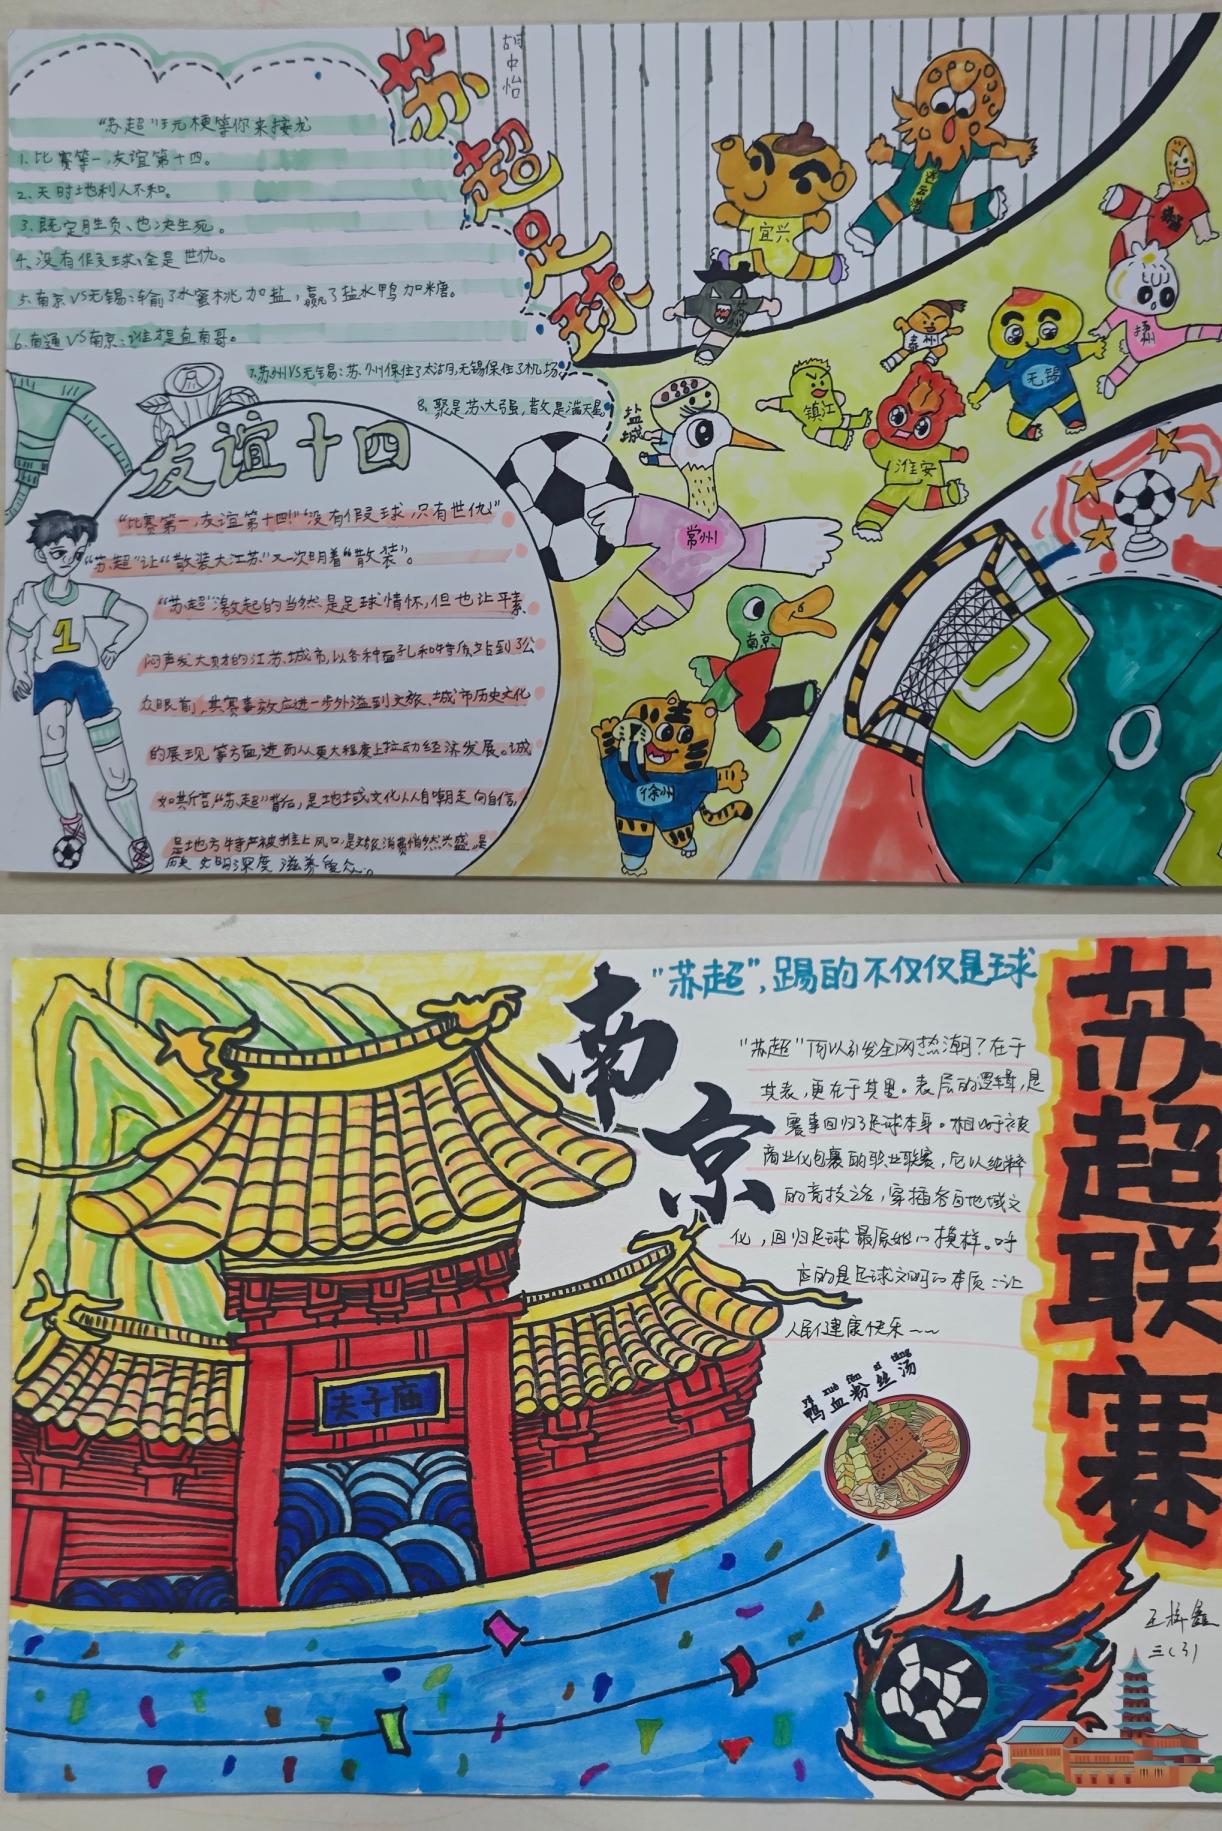 苏超足球
胡中怡
“苏超”玩梗等你来接龙
1.比赛第一,友谊第十四。
2、天时地利人不和。
3.既定胜负、也决生死。
4、没有假球,全是世仇。
5、南京VS无锡:输了水蜜桃加盐,赢了盐水鸭加糖。
6、南通VS南京:谁才是真南哥。
7.苏州VS无锡:苏州保住了太湖,无锡保住了机场。
8、聚是苏大强,散是满天星
友谊十四
“比赛第一,友谊第十四!”“没有假球,只有世仇”
“苏超”让“散装大江苏”又一次明着“散装”。
“苏超”激起的当然是足球情怀,但也让平素
闷声发大财的江苏城市,以各种面孔和特质站到了公
众眼前,其赛事效应进一步外溢到文旅、城市历史文化
的展现等方面,进而从更大程度上拉动经济发展。诚
如斯言,“苏超”背后,是地域文化从自嘲走向自信,
是地方特产被推上风口,是文旅消费悄然兴盛,是
历史文明深度滋养民众。
1
宜兴
连云港
苏州
泰州
无锡
扬州
盐城
镇江
淮安
常州
南京
徐州
南京
“苏超”,踢的不仅仅是球
“苏超”何以引发全网热潮?在于
其表,更在于其里。表层的逻辑,是
赛事回归了足球本身。相比于被
商业化包裹的职业联赛,它以纯粹
的竞技之名,穿插各自地域文
化,回归足球最原始的模样。呼
应的是足球文明的本质:让
人民健康快乐~~
苏超联赛
夫子庙
yā xuè fěn sī tāng
鸭血粉丝汤
王梓鑫
三(3)